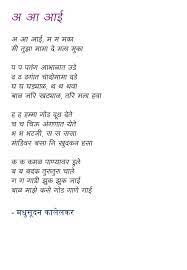 अ आ आई
अ आ आई, म म मका
मी तुझा मामा दे मला मुका
प प पतंग आभाळात उडे
ढ ढ ढगांत चांदोमामा दडे
घ घ घड्याळ, थ थ थवा
बाळ जरि खट्याळ, तरि मला हवा
ह ह हम्मा गोड दूध देते
च च चिऊ अंगणात येते
भ भ भटजी, स स ससा
मांडीवर बसा नि खुदकन हसा
क क कमळ पाण्यावर डुले
ब ब बदक तुरुतुरु चाले
ग ग गाडी झुक झुक जाई
बाळ माझे कसे गोड गाणे गाई
- मधुसूदन कालेलकर